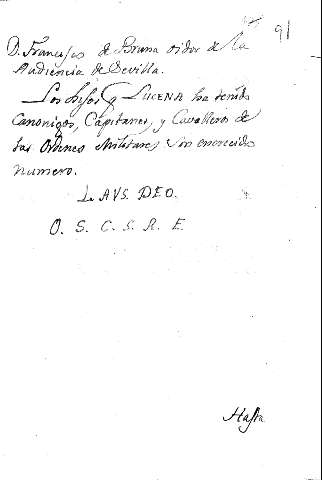 91
D. Francisco de Bruna oidor de la
Audiencia de Sevilla.
Los hijos q LUCENA ha tenido
Canonigos, Capitanes, y Cavalleros de
las Ordenes Militares son en crecido
numero.
LAVS. DEO.
O. S. C. S. R. E.
Hasta